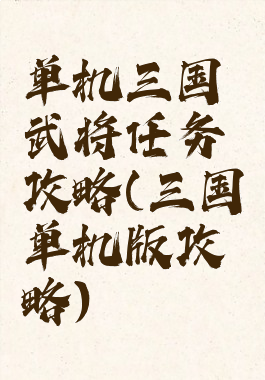 单机三国
武将任务
攻略(三国
单机版攻
略)